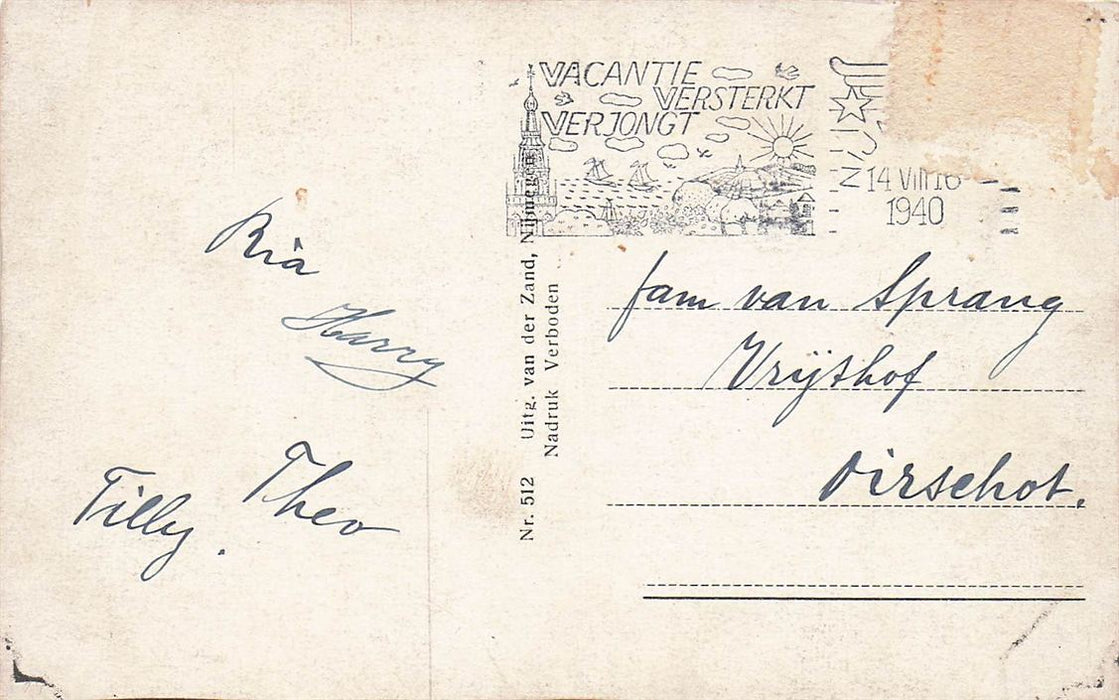 VACANTIE
VERSTERKT
VERJONGT
14 VIII 16
1940
Ria
Harry
Tilly. Theo
Nr. 512 Uitg. van der Zand, Nijmegen
Nadruk Verboden
fam van Sprang
Vrijthof
Oirschot.